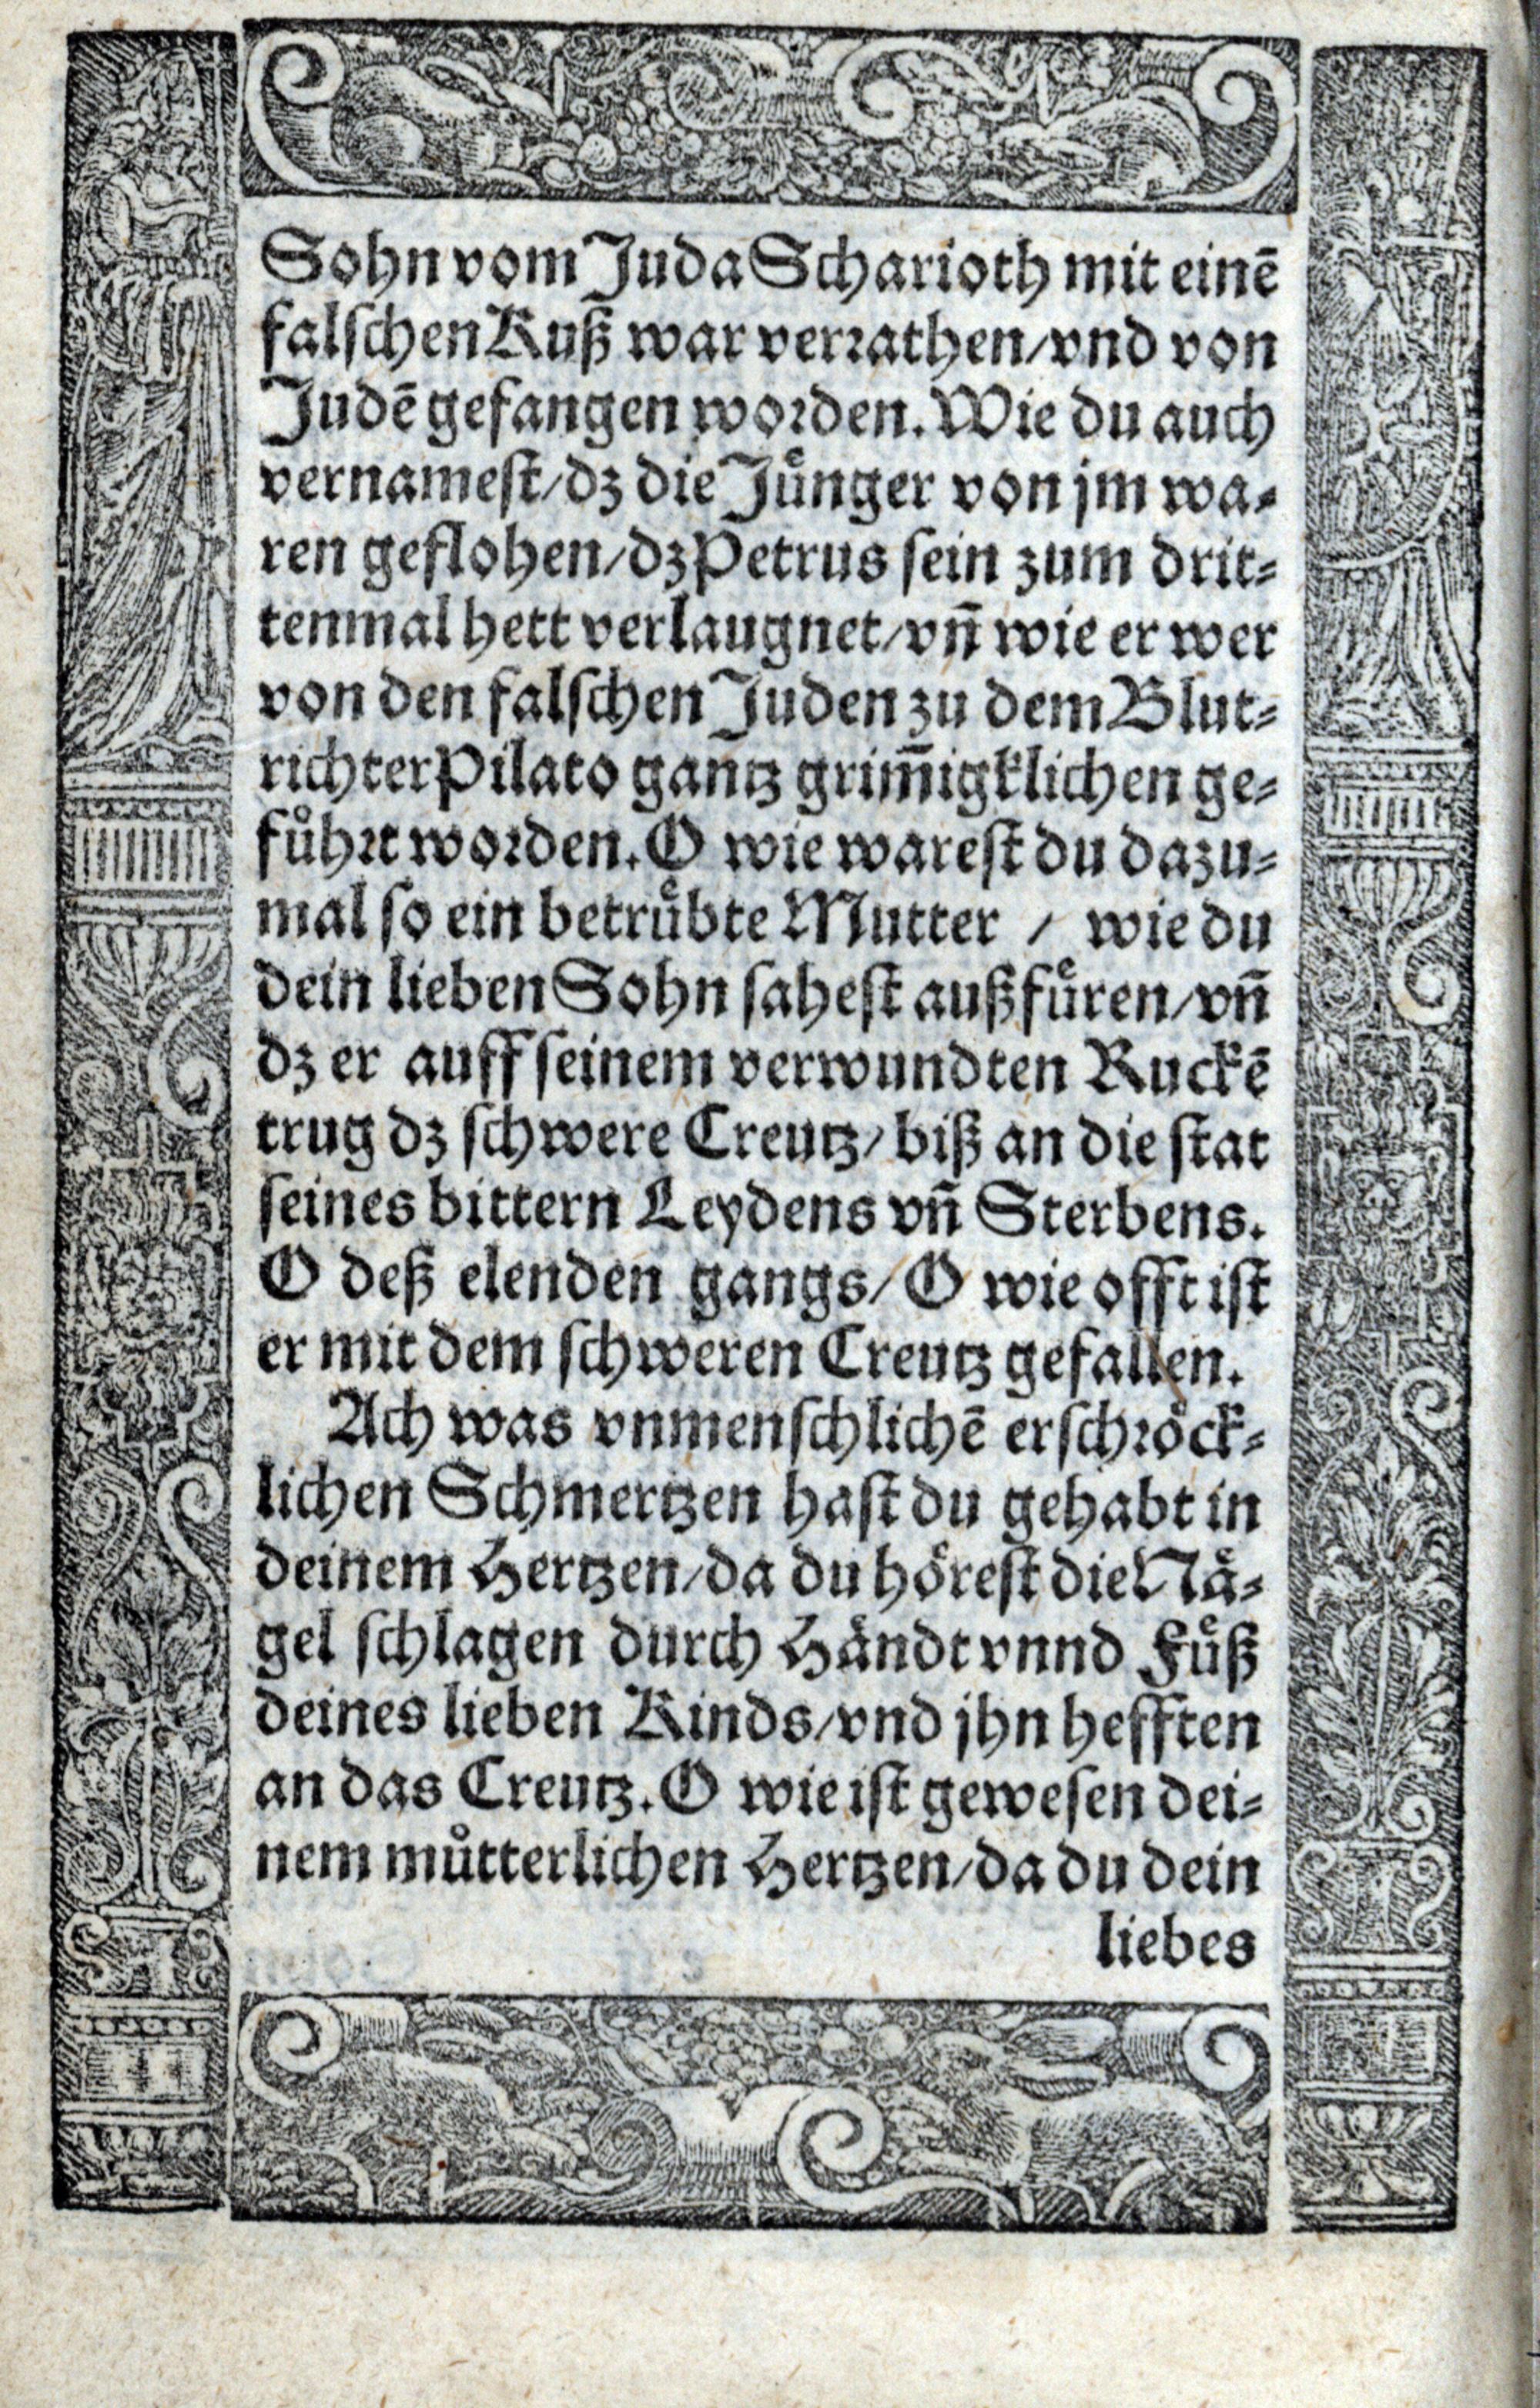 Sohn vom Juda Scharioth mit einē
falschen Kuß war verꝛathen/vnd von
Judē gefangen woꝛden. Wie du auch
vernamest/dz die Jůnger von jm wa⸗
ren geflohen/dz Petrus sein zum drit⸗
tenmal hett verlaugnet/vn̄ wie er wer
von den falschen Juden zu dem Blut⸗
richter Pilato gantz grim̄igklichen ge⸗
fůhꝛt woꝛden. O wie warest du dazu⸗
mal so ein betruͤbte Mutter / wie du
dein lieben Sohn sahest außfuͤren/vn̄
dz er auff seinem verwundten Ruckē
trug dz schwere Creutz/biß an die stat
seines bittern Leydens vn̄ Sterbens.
O deß elenden gangs/O wie offt ist
er mit dem schweren Creutz gefallen.
Ach was vnmenschlichē erschꝛoͤck⸗
lichen Schmertzen hast du gehabt in
deinem Hertzen/da du hoͤrest die Naͤ⸗
gel schlagen durch Haͤndt vnnd Fuͤß
deines lieben Kinds/vnd jhn hefften
an das Creutz. O wie ist gewesen dei⸗
nem můtterlichen Hertzen/da du dein
liebes